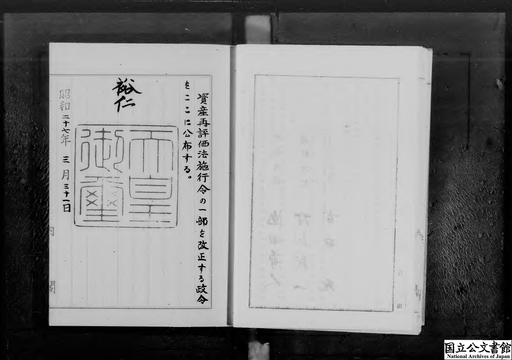 資産再評価法施行令の一部を改正する政令
をここに公布する。
裕仁
天皇
御璽
昭和二十七年三月三十一日
内閣
国立公文書館
National Archives of Japan